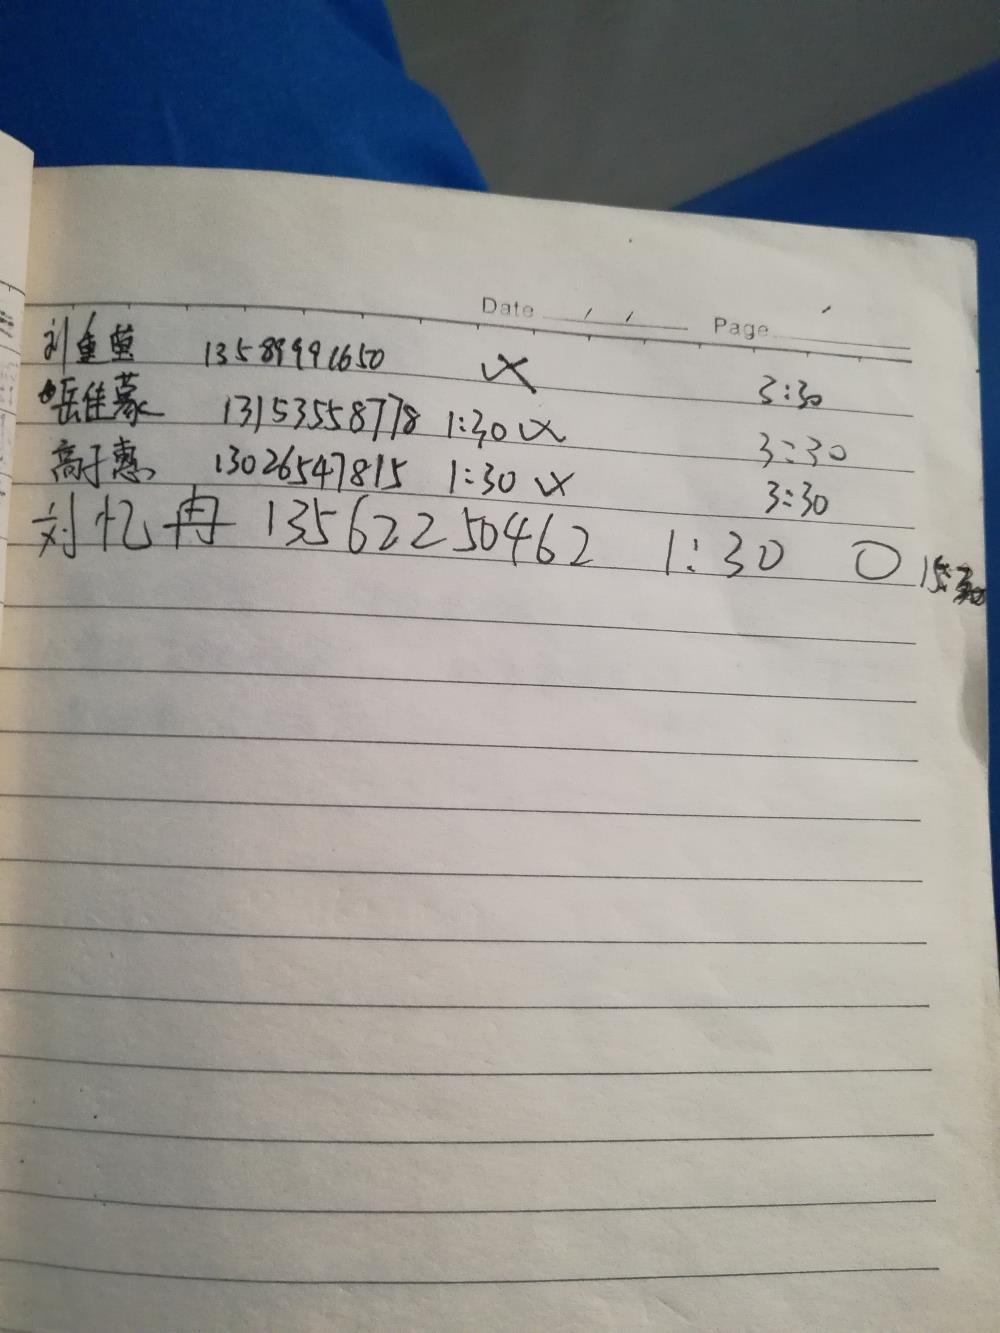 Date / / Page
刘重萤 13589991650 × 3:30
岳佳蒙 13153558778 1:30 × 3:30
高于惠 13026547815 1:30 × 3:30
刘忆冉 13562250462 1:30 〇 15:30